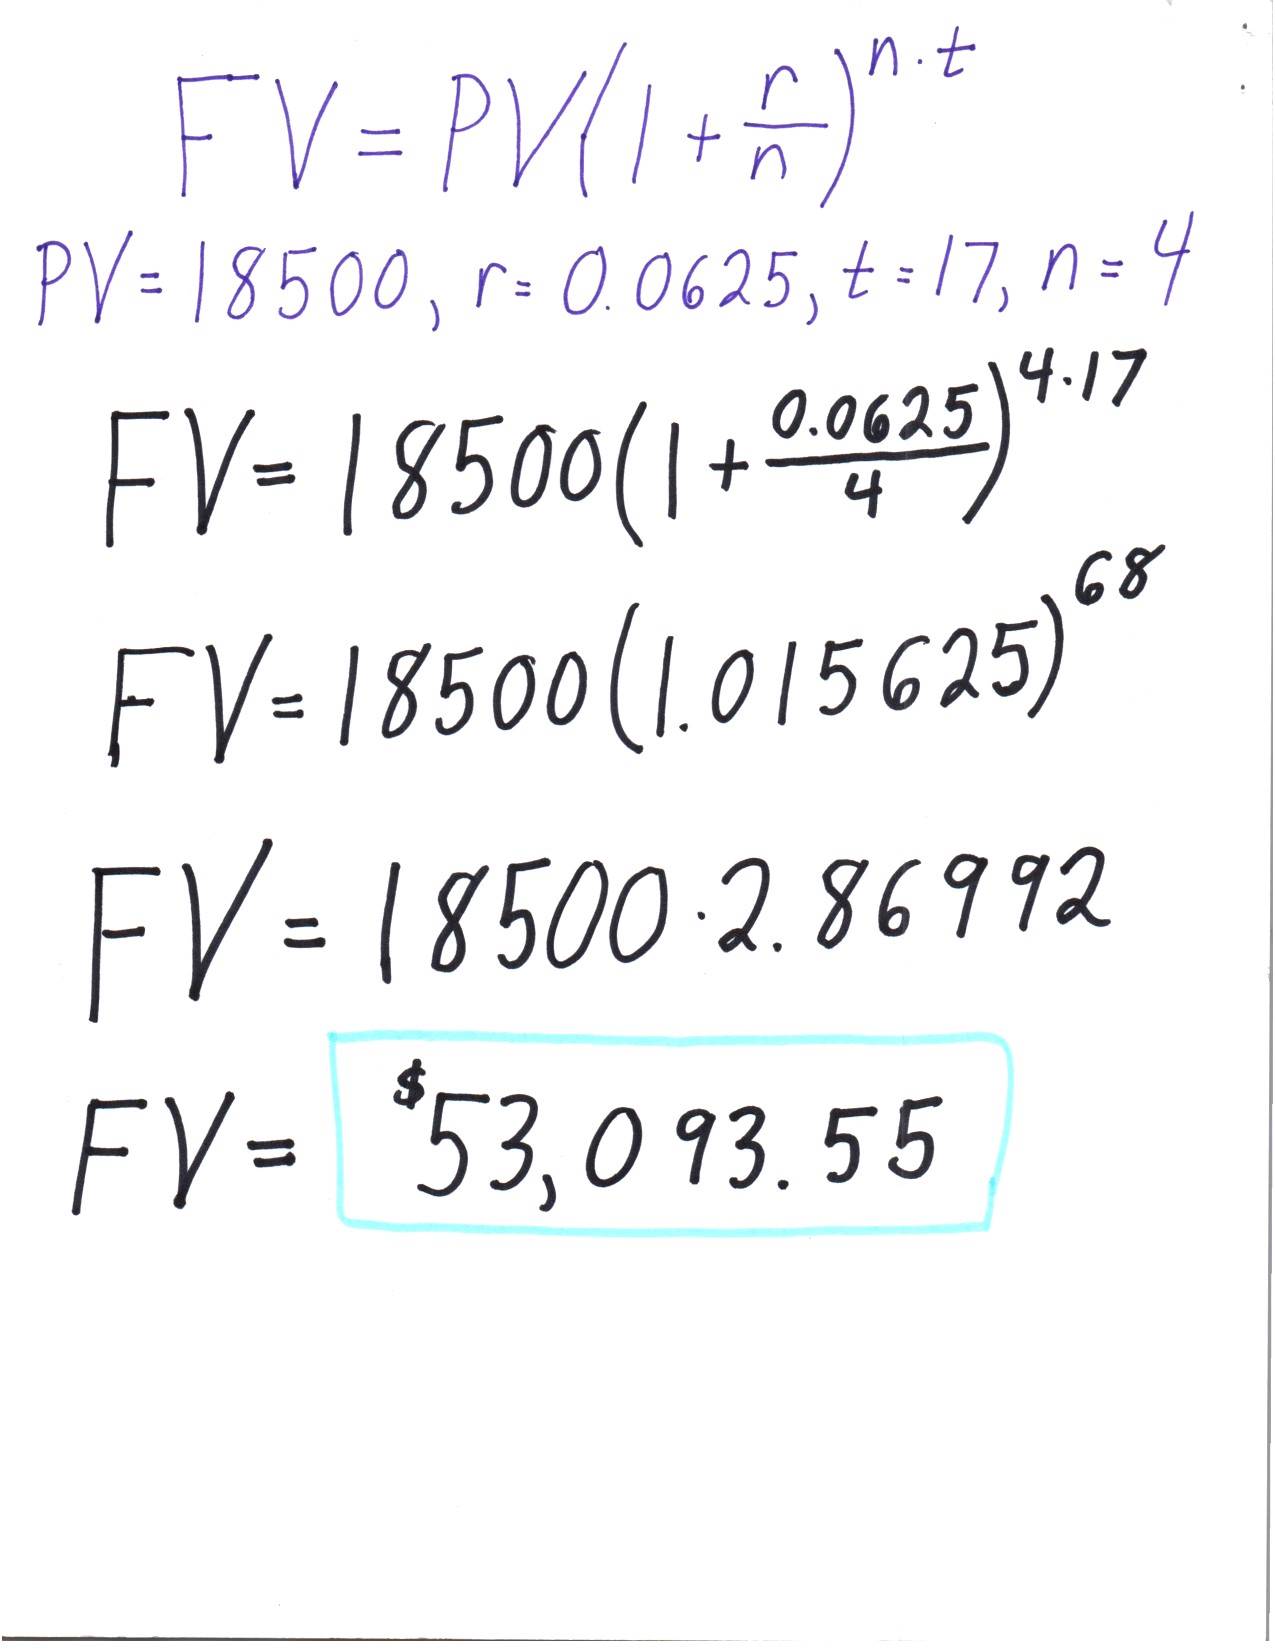 FV = PV(1 + r/n)^n·t
PV = 18500, r = 0.0625, t = 17, n = 4
FV = 18500(1 + 0.0625/4)^4·17
FV = 18500(1.015625)^68
FV = 18500 · 2.86992
FV = $53,093.55